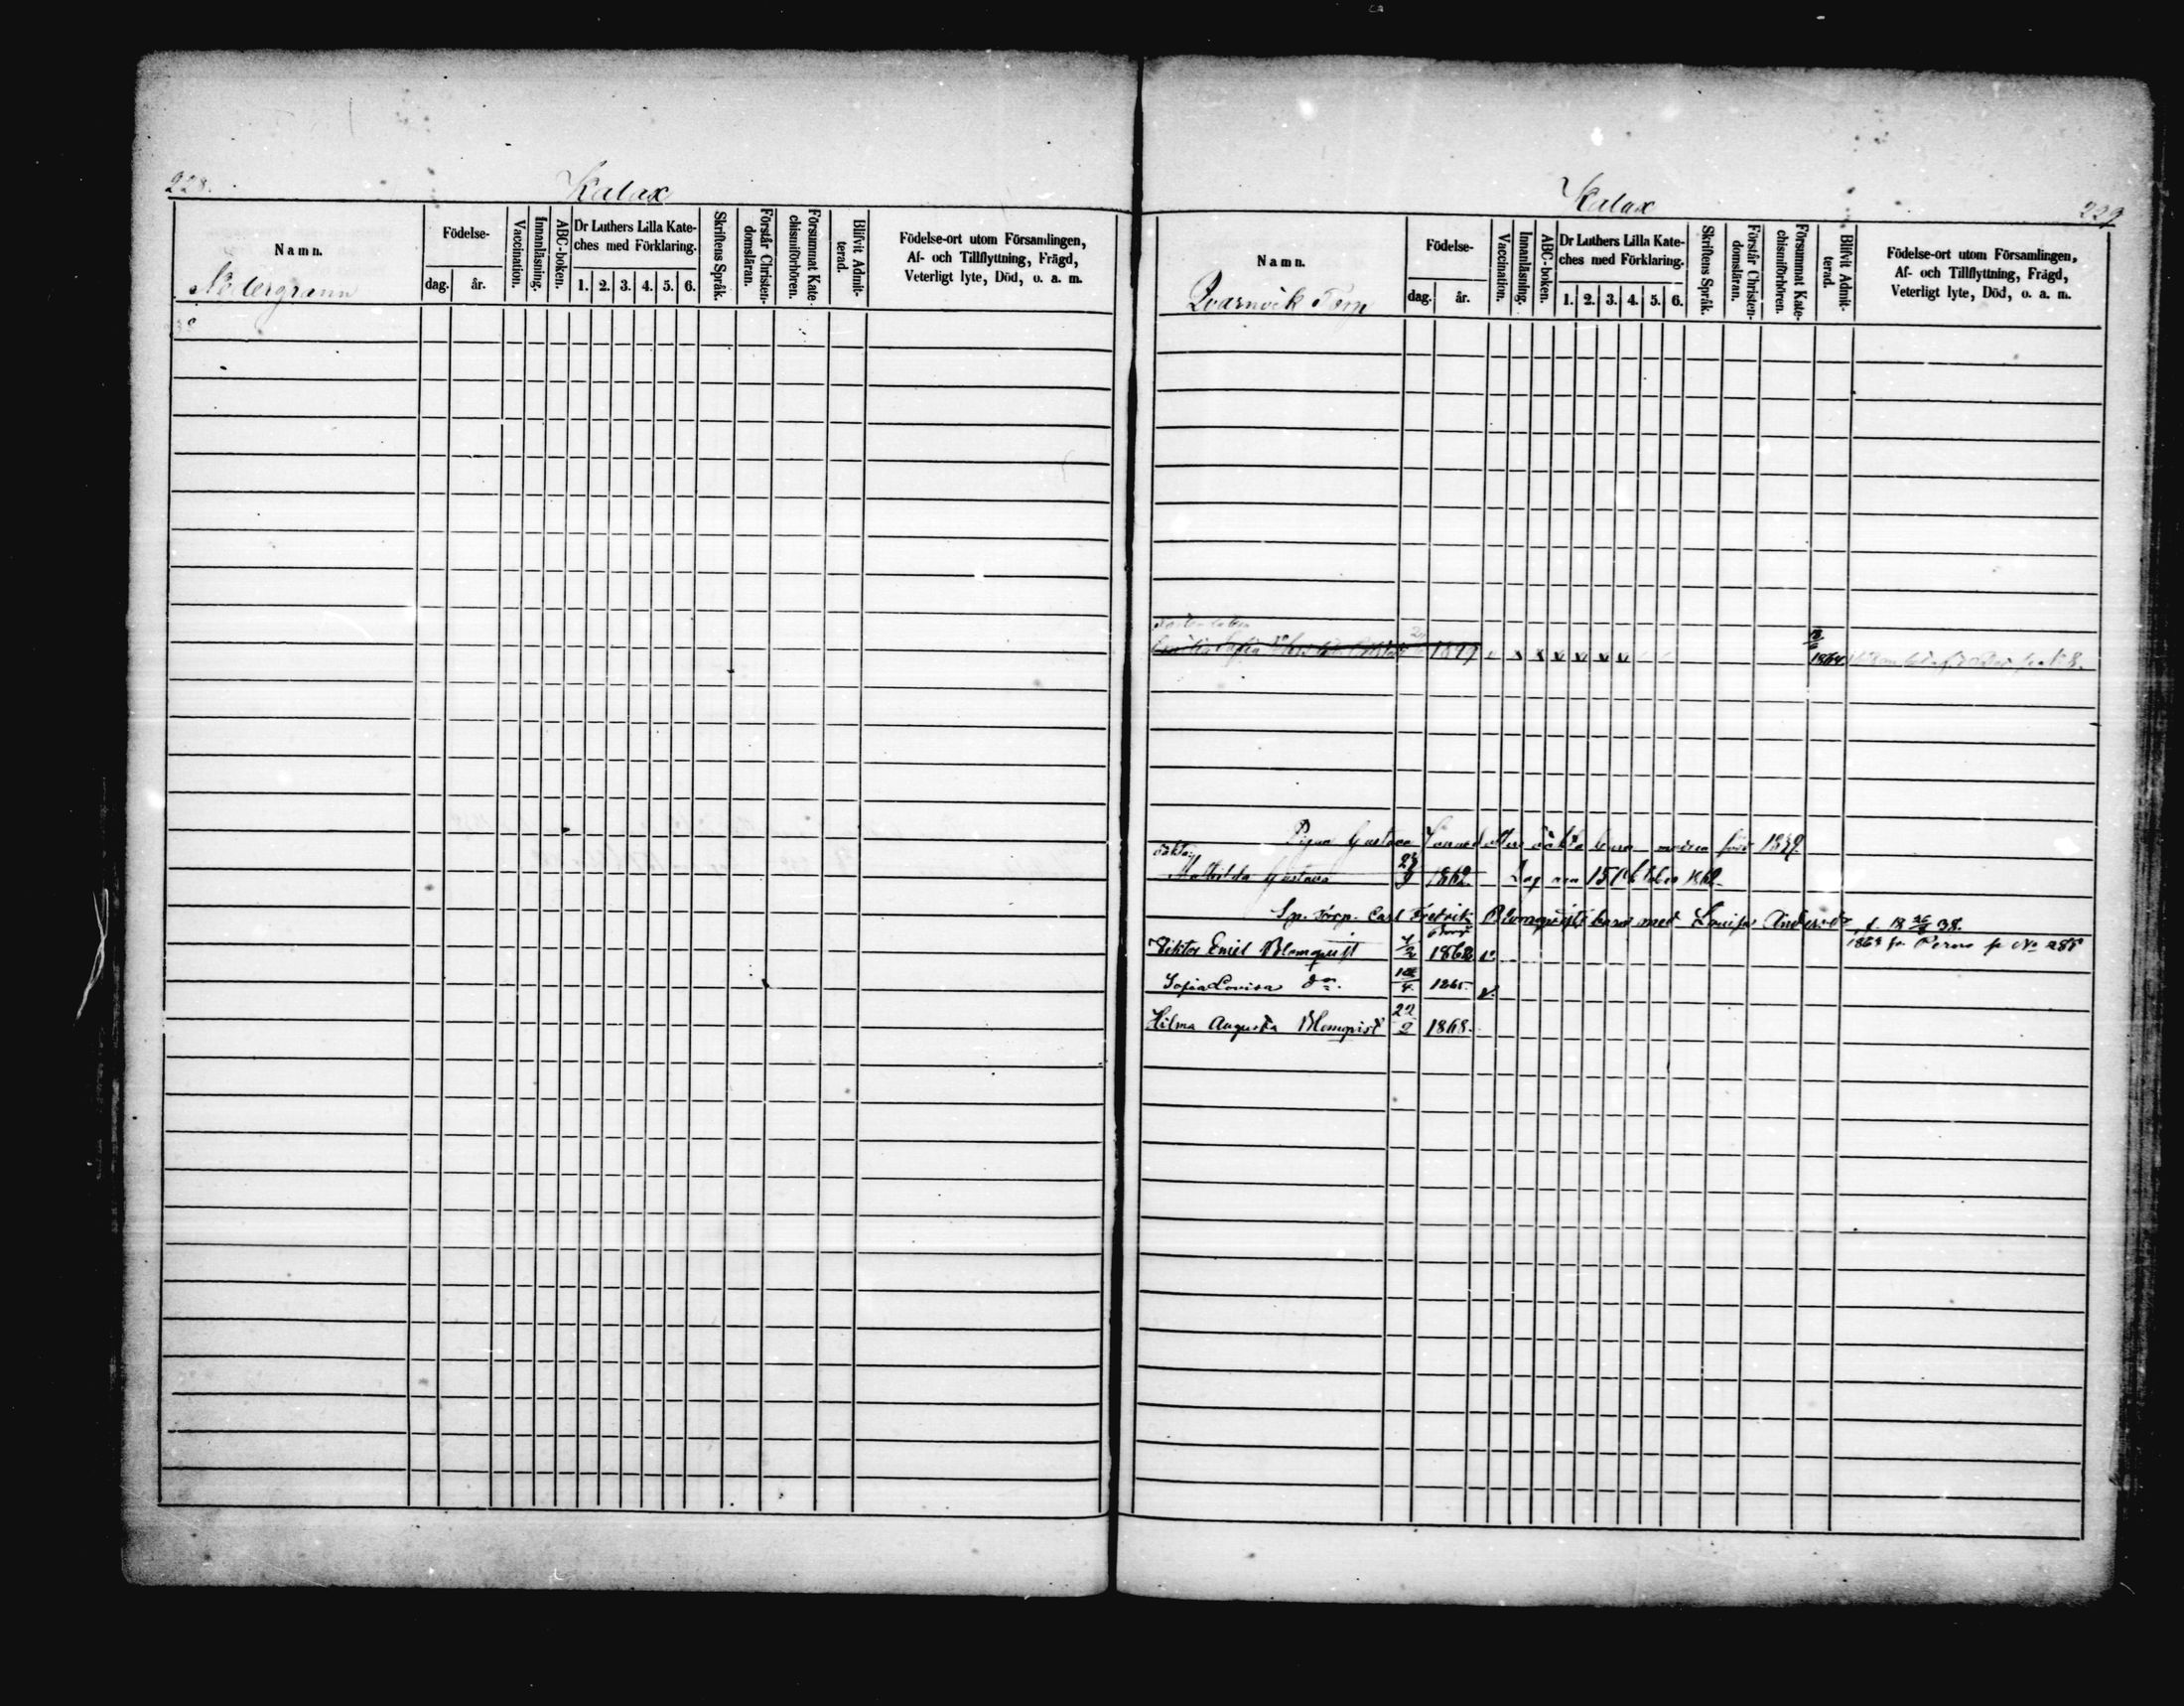 228.
Kalax
Namn.
Nedergrann
Födelse-
dag.
år.
Vaccination.
Innanläsning.
ABC-boken.
Dr Luthers Lilla Kate-
ches med Förklaring.
1. 2. 3. 4. 5. 6.
Skriftens Språk.
Förstår Christen-
domsläran.
Försummat Kate-
chismiförhören.
Blifvit Admit-
terad.
Födelse-ort utom Församlingen,
Af- och Tillflyttning, Frägd,
Veterligt lyte, Död, o. a. m.
Kalax
229
Namn.
Qvarnvik Torp
Födelse-
dag.
år.
Vaccination.
Innanläsning.
ABC-boken.
Dr Luthers Lilla Kate-
ches med Förklaring.
1. 2. 3. 4. 5. 6.
Skriftens Språk.
Förstår Christen-
domsläran.
Försummat Kate-
chismiförhören.
Blifvit Admit-
terad.
Födelse-ort utom Församlingen,
Af- och Tillflyttning, Frägd,
Veterligt lyte, Död, o. a. m.
Sofia 1847 1864
Pigan Gustava oäkta barn modren född 1839.
oäkta
Mathilda Gustava 1862 15 October 1862
Sp. torp. Carl Fredrik Blomqvists barn med Lovisa f. 18 38.
Viktor Emil Blomqvist 4/2 1862 v. 1869 fr. Perno p No 285
Sofia Lovisa do. 1865 v.
Hilma Augusta Blomqvist 22/2 1868.